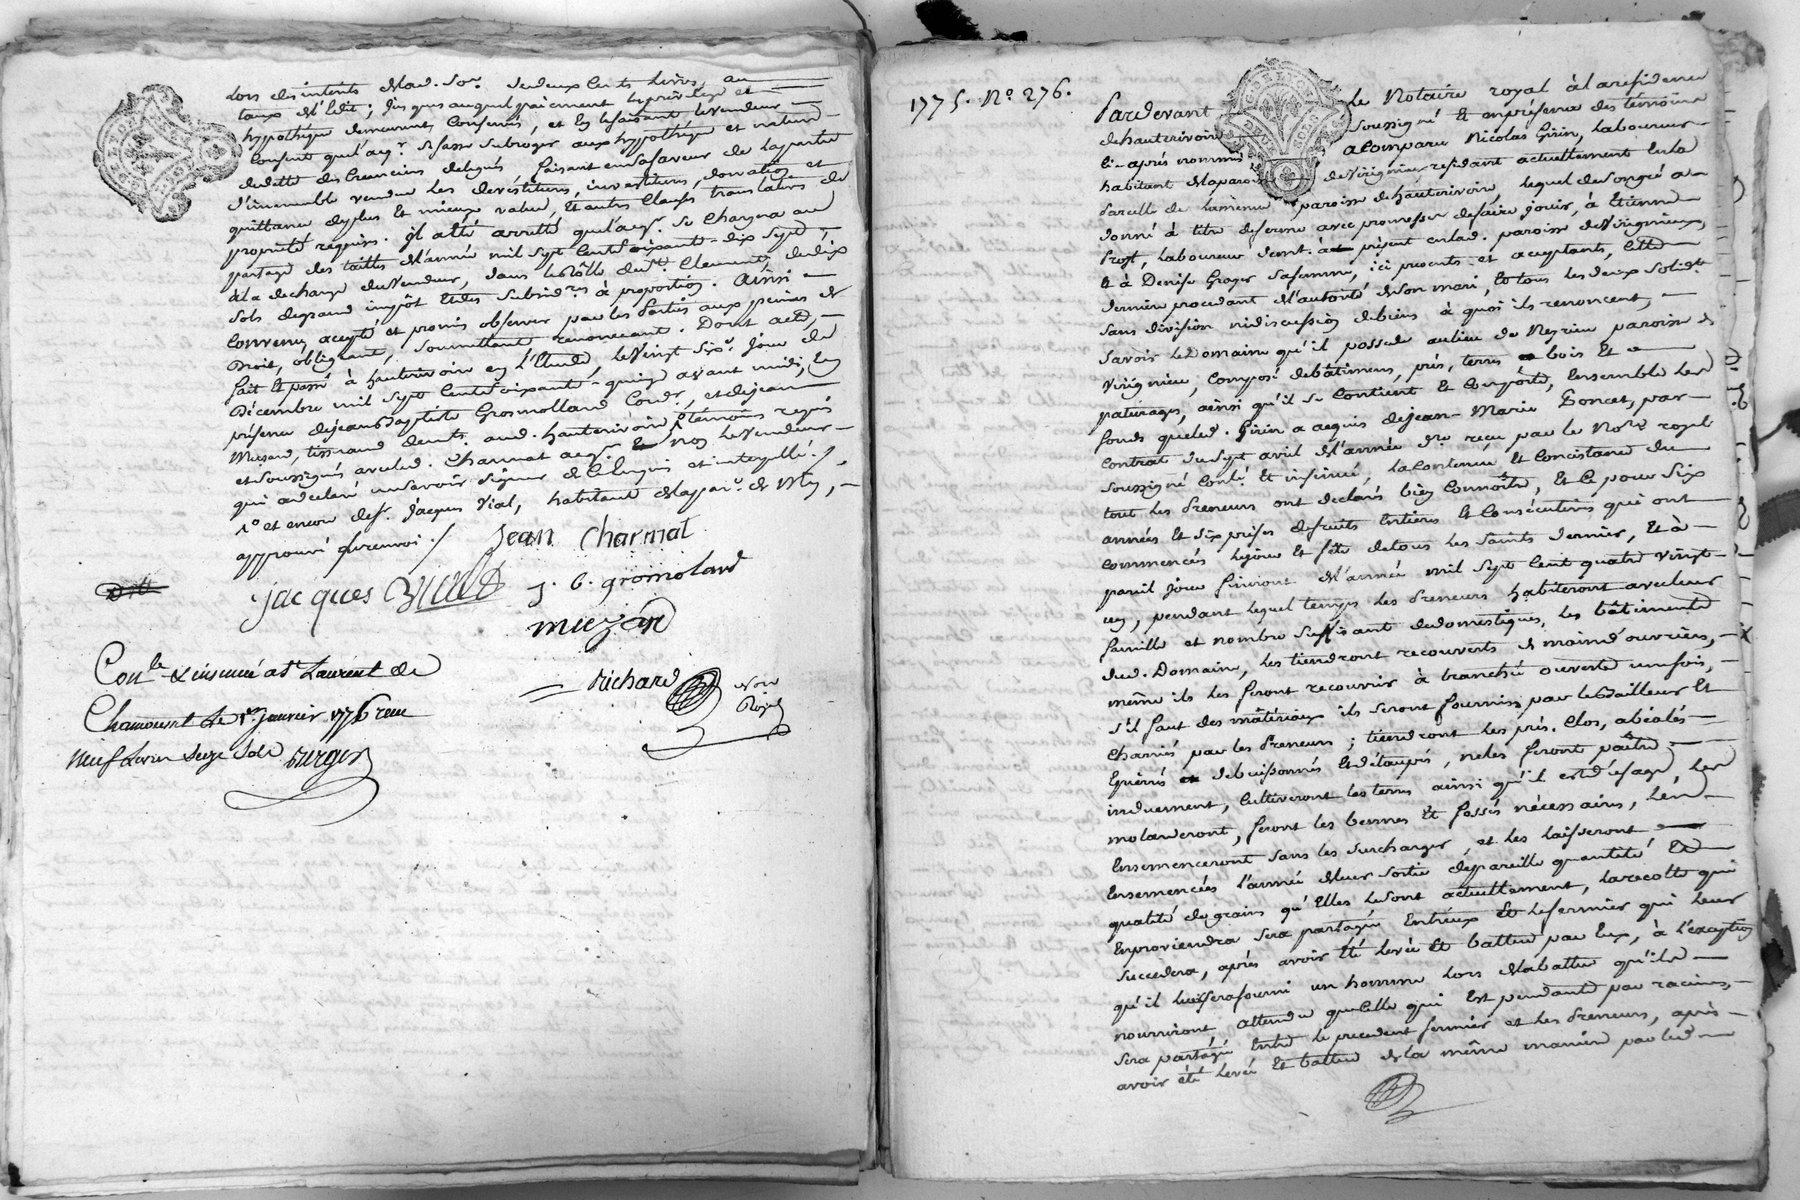 lors des interets de lad. somme de deux cents livres, au
taux de l'Edit; jusques auquel paiement le privilege et
hypotheque demeurent conservés, et en le faisant le vendeur
consent que l'aqr. se fasse subroger aux hypotheque et nature
de dette des creanciers delegués, faisant en sa faveur de la partie
d'immeuble vendue les devestitures, investitures, donation et
quittance de plus et mieux value, et autres clauses translatives de
propriété requises. Il a été arretté que l'aqr. se chargera au
partage des tailles de l'année mil sept cent soixante-dix sept,
à la decharge du vendeur, dans le Rôlle dud. St. Clement, de dix
sols de grand impôt et des subsides à proportion. Ainsi
convenu, accepté et promis observer par les Parties aux peines de
Droit, obligeant, soumettant renonceant. Dont acte,
fait et passé à hauterivoire en l'Etude, le vingt six. jour de
Décembre mil sept cent soixante-quinze avant midi, en
présence de jean Baptiste Gromolland Cordr. et de jean
Miezard, tisserand demts. aud. hauterivoire 1º témoins requis
et soussignés avec led. Charmat aqr. et non le vendeur
qui a declaré ne savoir signer de ce enquis et interpellé./.
1º et encore de sr. jacques Vial, habitant de la par. de
approuvé le renvoi./.
Jean Charmat
jacques Viald
J. B. gromolard
miezard
Richard
Nore
Royal
Conlé & insinué a St Laurent de
Chamousset le 1er janvier 1776 reçu
neuf livres seize sols
1775. Nº 276.
Pardevant le Notaire royal à la residence
de hauterivoire soussigné et en présence des témoins
ci-après nommés a comparu Nicolas Girin, laboureur
habitant de la paroisse de Virignieu residant actuellement en la
parcelle de paroisse de hauterivoire, lequel de son gré a
donné à titre de ferme avec promesse de faire jouir, à Etienne
Prost, laboureur demt. à présent en lad. paroisse de Virignieux,
et à Denise Groger sa femme, ici presents et acceptants, cette
derniere procedant de l'autorité de son mari, et tous les deux solidt.
sans division ni discussion de biens à quoi ils renoncent,
savoir le Domaine qu'il possede au lieu de Neyrieu paroisse de
Virignieu, composé de bâtiments, prés, terres bois et
paturages, ainsi qu'il se contient et comporte, ensemble les
fonds que led. Girin a acquis de jean-Marie Poncet, par
contrat du sept avril de l'année dre. recu par le Nore. royal
soussigné contlé. et insinué, la contenue et consistance du
tout les Preneurs ont declaré bien connoitre, et ce pour six
années et six prises de fruits entieres et consécutives qui ont
commencés le jour et fête de tous les Saints dernier, et à
pareil jour finiront de l'année mil sept cent quatre vingt
un, pendant lequel temps les Preneurs habiteront avec leur
famille et nombre suffisant de domestiques, les bâtiments
dud. Domaine, les tiendront recouverts de main d'ouvriers,
même ils les feront recouvrir à tranchée ouverte une fois,
s'il faut des matériaux ils seront fournis par le Bailleur et
charriés par les Preneurs; tiendront les prés clos, abéalés
épierrés et debuissonnés et détaupés, ne les feront paître
induement, cultiveront les terres ainsi qu'il est d'usage, les
feront les bennes et fossés nécessaires, les
ensemenceront sans les surcharger, et les laisseront
ensemencées l'année de leur sortie de pareille quantité et
qualité de grains qu'elles le sont actuellement, la recolte qui
en proviendra sera partagée entreux et le fermier qui leur
succedera, après avoir été levée et battue par eux, à l'exception
qu'il leur sera fourni un homme lors de la battue qu'ils
nourriront, attendu que celle qui est pendante par racines,
sera partagée entre le precedent fermier et les Preneurs, après
avoir été levée et battue de la même maniere par led.